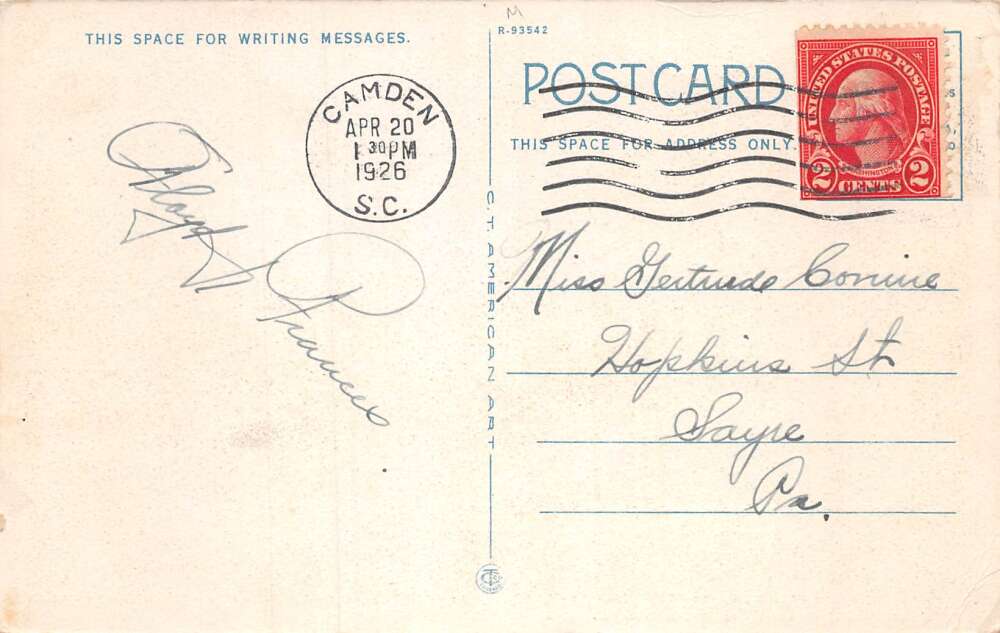 M
R-93542
THIS SPACE FOR WRITING MESSAGES.
POST CARD
THIS SPACE FOR ADDRESS ONLY.
CAMDEN
APR 20
1 30 PM
1926
S.C.
UNITED STATES POSTAGE
WASHINGTON
2 CENTS 2
Floyd
Frances
C.T. AMERICAN ART
Miss Gertrude Corvine
Hopkins St
Sayre
Pa.